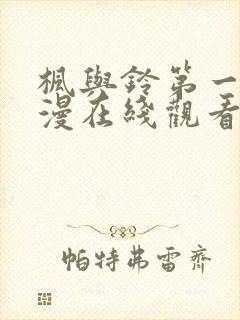 楓與鈴第一
漫在綫觀看
帕特弗雷齊